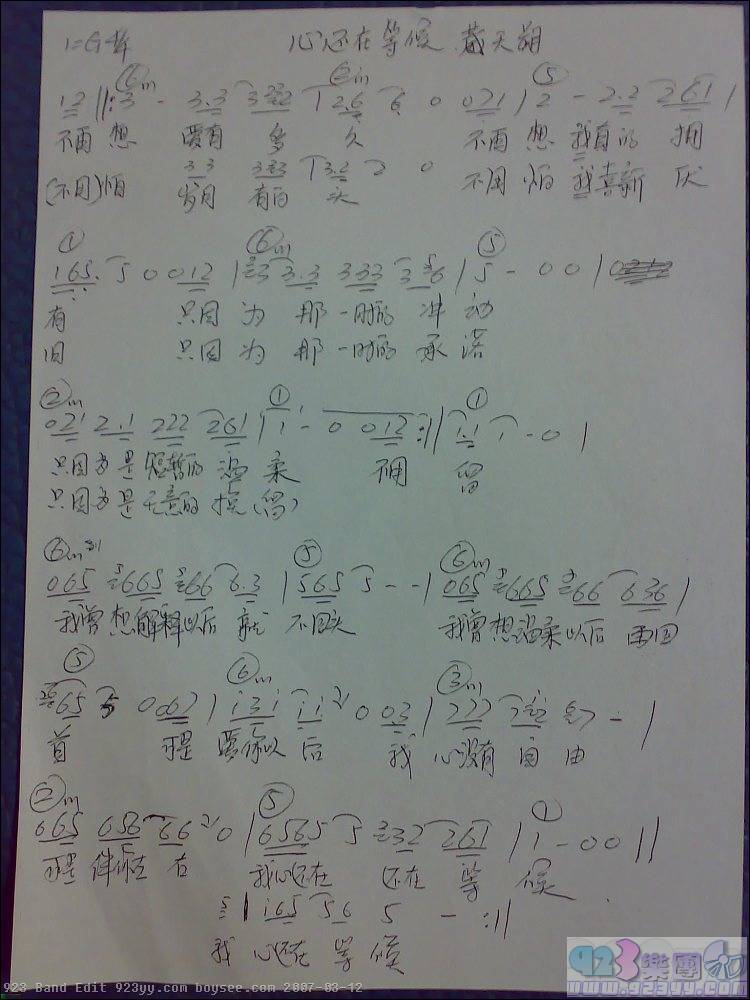 1=G 心还在等候 臧天朔
⑥m ②m ⑤
12 ||: 3 - 3.3 3332 | 26 6 0 021 | 2 - 2.2 261 |
不再 想 要有 多 久 不再 想 我有的 拥
33 333 | 3.2 2 0
(不用)怕 岁月 有白 头 不用 怕 我喜新 厌
① ⑥m ⑤
165. 5 0 012 | 3 3.3 333 3 6 | 5 - 0 0 |
有 只因 为 那 一时的 冲 动
旧 只因 为 那 一时的 承 诺
②m ① ①
021 2.1 222 261 | 1 - 0 012 :|| 1.1 1 - 0 |
只因为是 短暂的 温 柔 不用 留
只因为是 无意的 挽(留)
⑥m ⑤ ⑥m
065 665 66 6.3 | 565 5 - - | 065 665 66 636 |
我曾 想解释以后 就 不回头 我曾 想温柔以后 再回
⑤ ⑥m ③m
65 5 0 | i3i ii 0 03 | 222
首 可是 要你以 后 我 心没有 自 由
②m ⑤ ①
665 656 66 0 | 6565 5 332 261 | 1 - 0 0 ||
可是 伴你左 右 我心还在 还在 等 候
5 | i65 56 5 - :||
我 心还在 等 候
923 Band Edit 923yy.com boysee.com 2007-03-12
923樂團
www.923yy.com